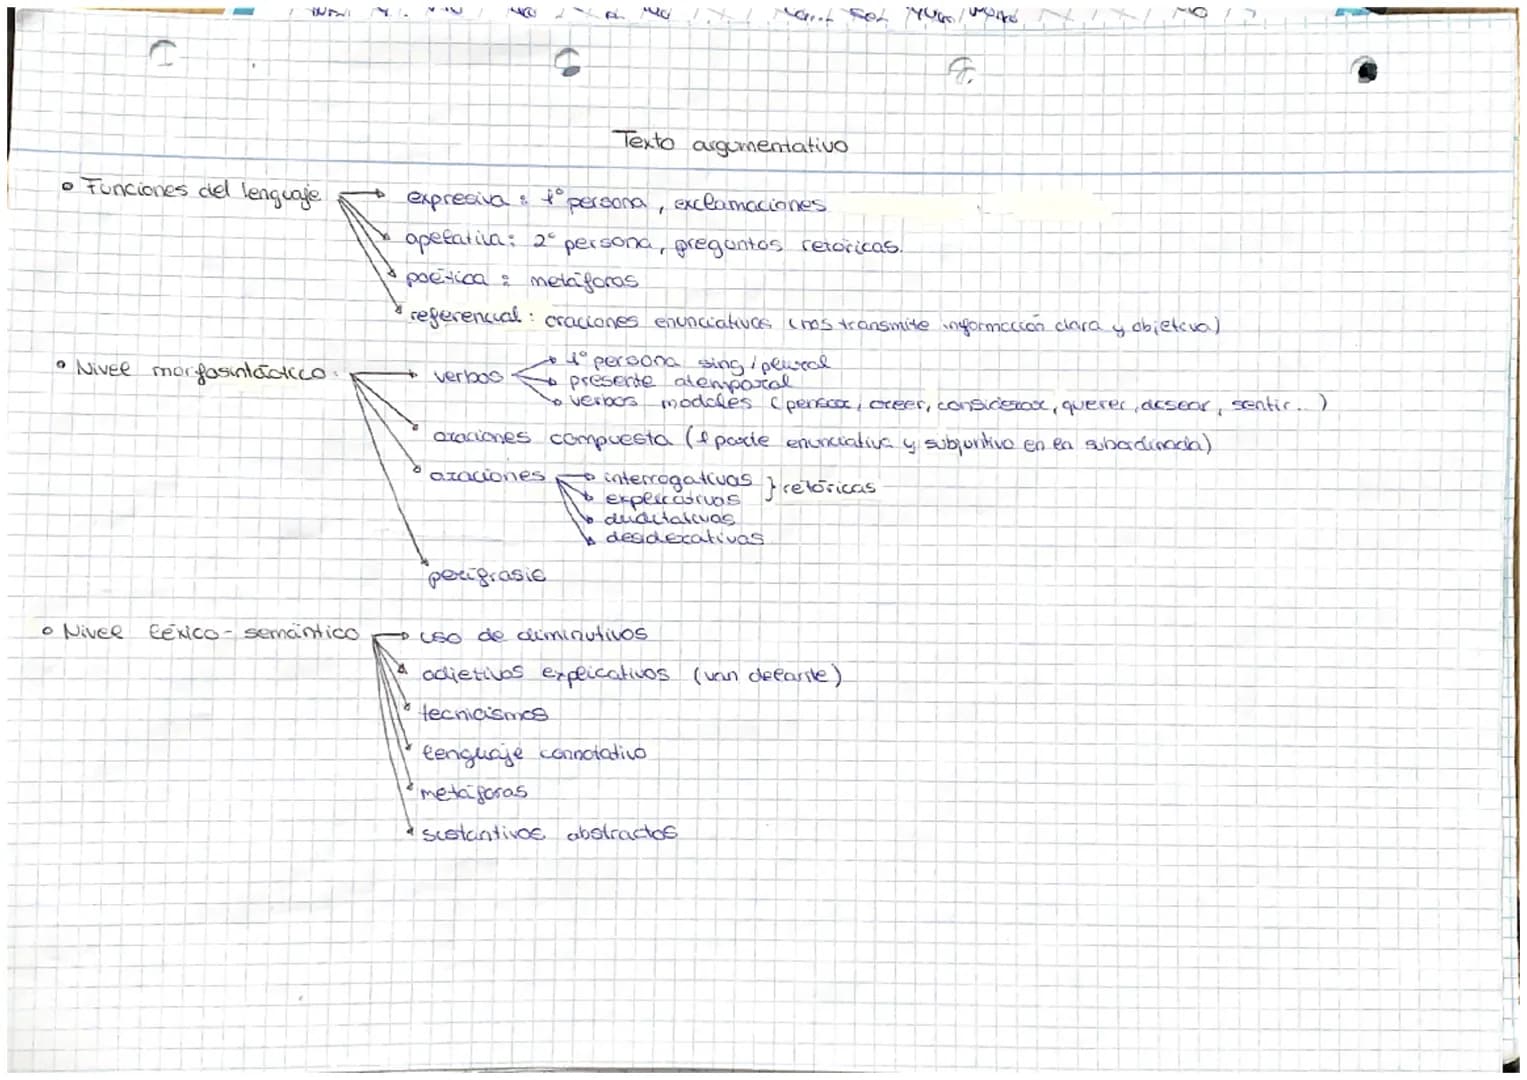 Texto argumentativo
• Funciones del lenguaje → expresiva : 1º persona, exclamaciones
apelativa: 2º persona, preguntas retóricas.
poética : metáforas
referencial : oraciones enunciativas (nos transmite información clara y objetiva)
• Nivel morfosintáctico : → verbos → 1º persona sing/plural
→ presente atemporal
→ verbos modales (pensar, creer, considerar, querer, desear, sentir...)
oraciones compuesta (1 parte enunciativa y subjuntivo en la subordinada)
oraciones → interrogativas } retóricas
explicativas
dubitativas
desiderativas
perífrasis
• Nivel léxico - semántico → uso de diminutivos
adjetivos explicativos (van delante)
tecnicismos
lenguaje connotativo
metáforas
sustantivos abstractos